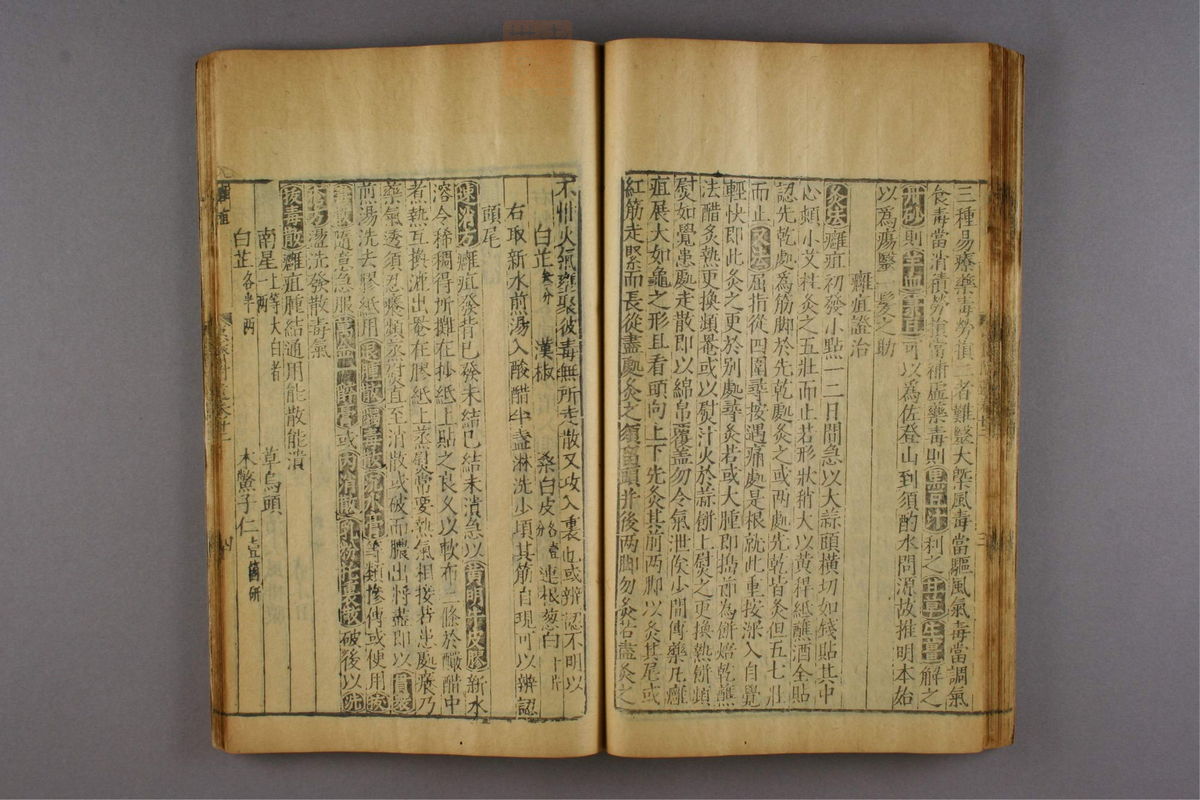 三種易療藥毒勞損二者難醫大槩風毒當驅風氣毒當調氣
食毒當消積勞損當補虛藥毒則黑豆汁利之甘草生薑解之
丹砂則可以為佐登山到須酌水問源故推明本始
以為瘍醫一髮之助
癰疽證治
灸法癰疽初發小點一二日間急以大蒜頭橫切如錢貼其中
心頓小艾炷灸之五壯而止若形狀稍大以黃稈紙蘸酒全貼
認先乾處為筋脚於先乾處灸之或兩處先乾皆灸但五七壯
而止又法屈指從四圍尋按遇痛處是根就此重按深入自覺
輕快即此灸之更於別處尋灸若或大腫即搗蒜為餅焙乾蘸
法醋炙熱更換頻罨或以熨汁火於蒜餅上熨之更換熱餅頻
熨如覺患處走散即以綿帛覆蓋勿令氣泄俟少間傅藥凡癰
疽展大如龜之形且看頭向上下先灸其前兩脚以灸其尾或
紅筋走緊而長從盡處灸之須留頭并後两脚勿灸若盡灸之
不惟火氣壅聚彼毒無所走散又攻入裏也或辨認不明以
白芷 漢椒 桑白皮 連根葱白十片
右取新水煎湯入酸醋半盞淋洗少頃其筋自現可以辨認
頭尾
速消方癰疽發背已發未結已結未潰急以黃明牛皮膠新水
溶令稀稠得所攤在抄紙上貼之良久以軟布二條於釅醋中
煮熱互換漉出罨在膠紙上蒸熨常要熱氣相接若患處癢乃
藥氣透須忍癢頻蒸熨直至消散或破而膿出將盡即以貫衆
煎湯洗去膠紙用等類摻傅或使用拔
隨意急服或內消散破後以洗
方盪洗發散毒氣
拔毒散癰疽腫結通用能散能潰
南星一兩上等大白者 草烏頭
白芷各半兩 木鱉子仁壹箇研
癰疽
四
三